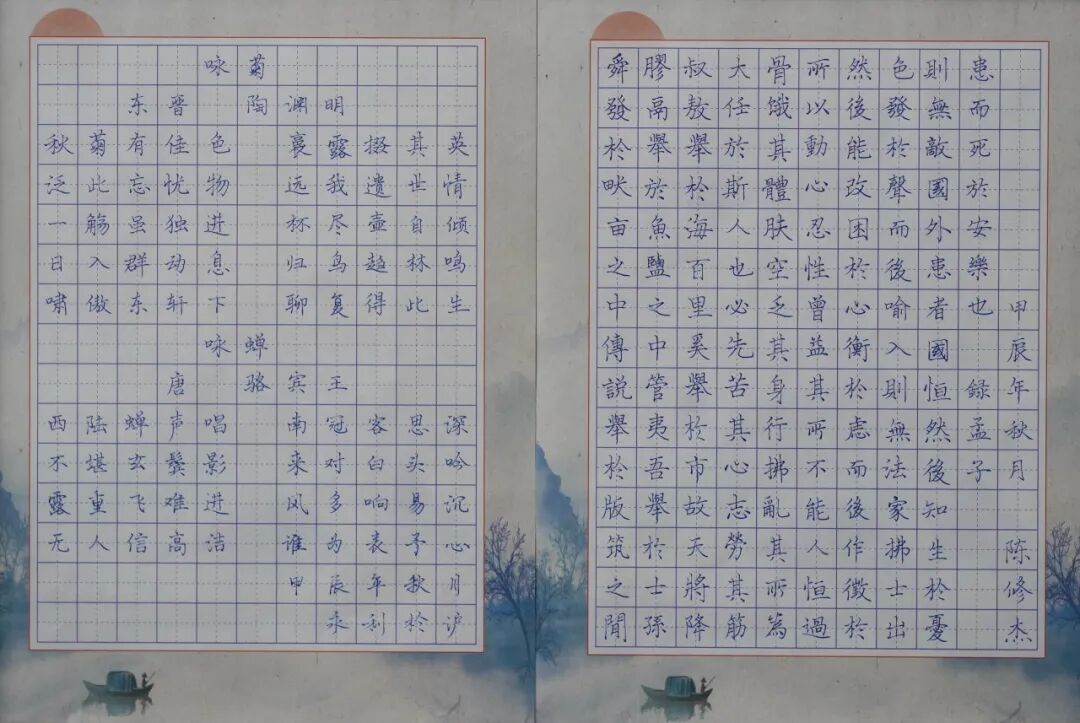 咏菊
东晋 陶渊明
秋菊有佳色 裛露掇其英
泛此忘忧物 远我遗世情
一觞虽独进 杯尽壶自倾
日入群动息 归鸟趋林鸣
啸傲东轩下 聊复得此生
咏蝉
唐 骆宾王
西陆蝉声唱 南冠客思深
不堪玄鬓影 来对白头吟
露重飞难进 风多响易沉
无人信高洁 谁为表予心
甲辰年秋月
来利於沪
舜發於畎亩之中傳説舉於版筑之閒
膠鬲舉於魚鹽之中管夷吾舉於士孫
叔敖舉於海百里奚舉於市故天將降
大任於斯人也必先苦其心志勞其筋
骨饿其體肤空乏其身行拂亂其所為
所以動心忍性曾益其所不能人恒過
然後能改困於心衡於虑而後作徵於
色發於聲而後喻入則無法家拂士出
則無敵國外患者國恒然後知生於憂
患而死於安樂也 録孟子
甲辰年秋月 陈修杰